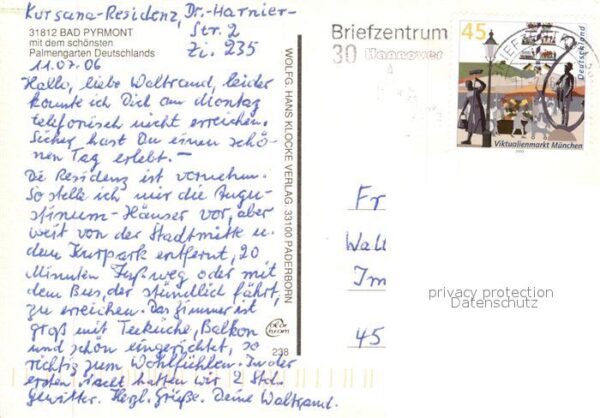 Kursana-Residenz, Dr.-Harnier-
Str. 2
31812 BAD PYRMONT
mit dem schönsten
Palmengarten Deutschlands
Zi. 235
11.07.06
Hallo, liebe Waltraud, leider
konnte ich Dich am Montag
telefonisch nicht erreichen.
Sicher hast Du einen schö-
nen Tag erlebt. –
Die Residenz ist vornehm.
So stelle ich mir die Augu-
stinum-Häuser vor, aber
weit von der Stadtmitte u.
dem Kurpark entfernt, 20
Minuten Fußweg oder mit
dem Bus, der stündlich fährt,
zu erreichen. Das Zimmer ist
groß mit Teeküche, Balkon
und schön eingerichtet, so
richtig zum Wohlfühlen. In der
ersten Nacht hatten wir 2 Std.
Gewitter. Herzl. Grüße. Deine Waltraud.
WOLFG. HANS KLOCKE VERLAG 33100 PADERBORN
238
Briefzentrum
30 Hannover
45
Deutschland
Viktualienmarkt München
Fr
Walt
Im
45
privacy protection
Datenschutz